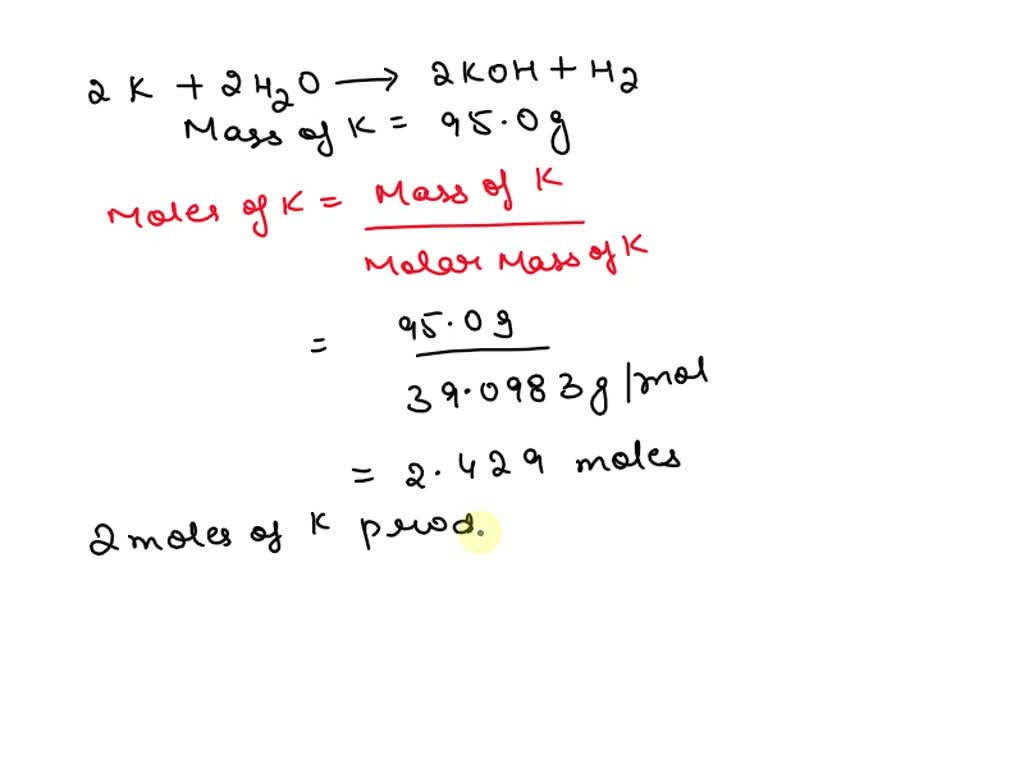 2 K + 2H2O ⟶ 2KOH + H2
Mass of K = 95.0g
Moles of K = Mass of K / Molar Mass of K
= 95.0g / 39.0983g/mol
= 2.429 moles
2 moles of K prod.